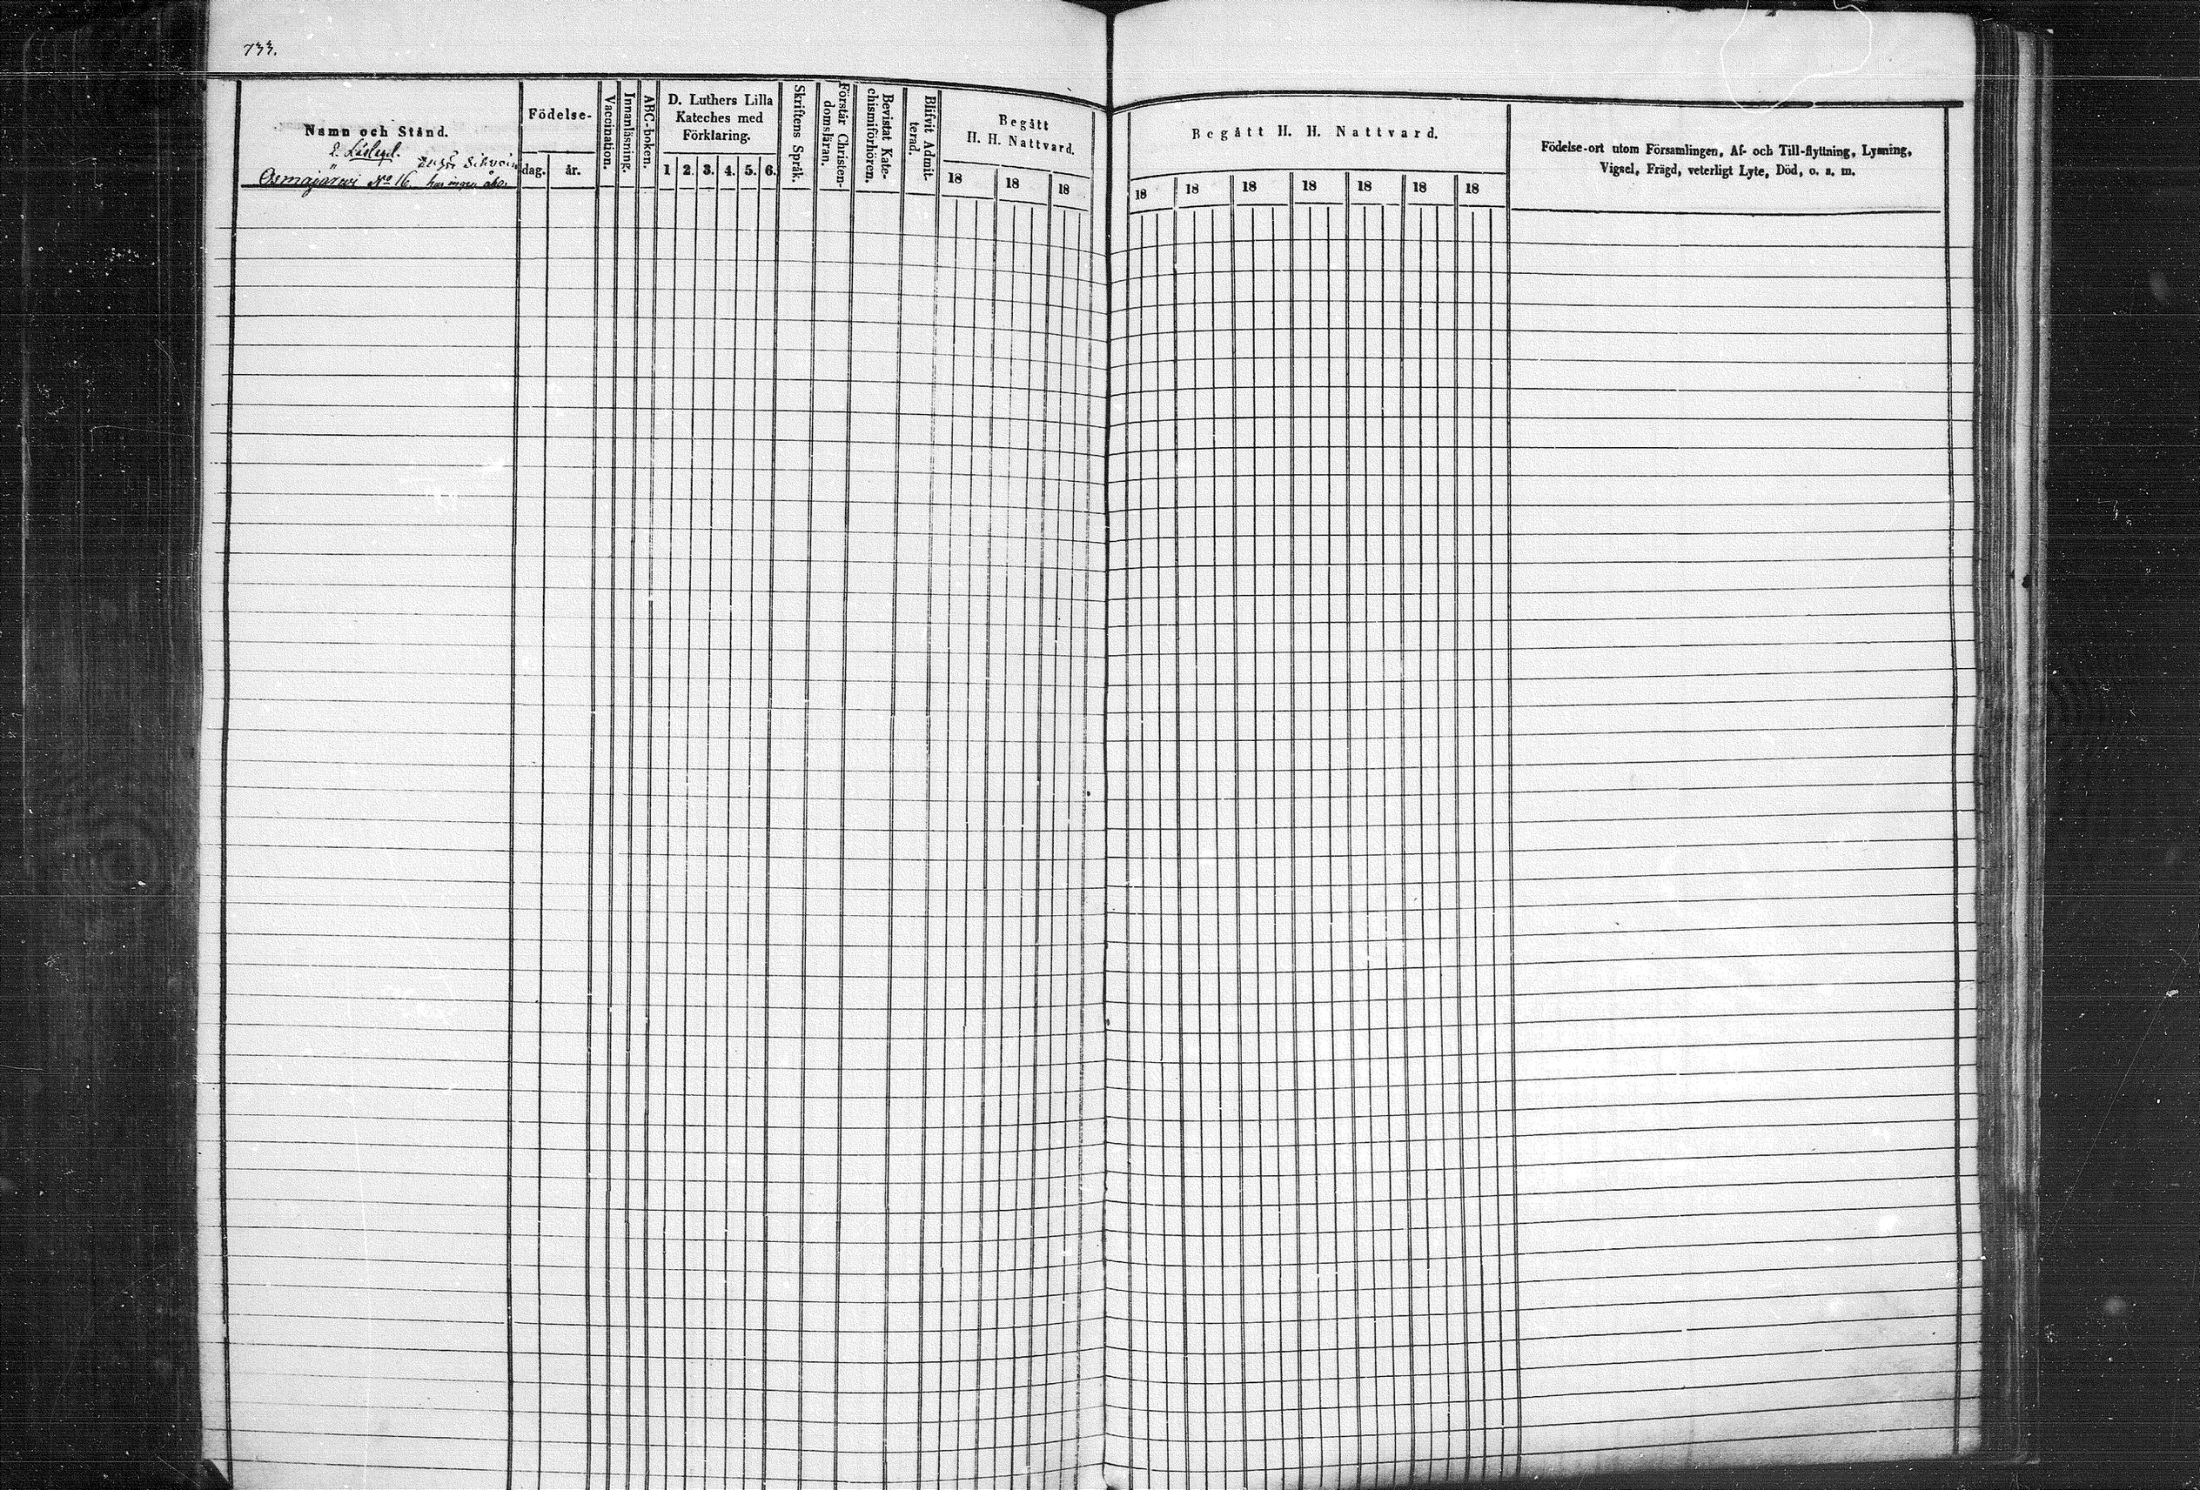 733.
Namn och Stånd.
2. Läslagd.
Osmajärwi No 16. har ingen åbo.
Födelse-
dag. år.
Vaccination.
Innanläsning.
ABC-boken.
D. Luthers Lilla
Kateches med
Förklaring.
1 2. 3. 4. 5. 6.
Skriftens Språk.
Förstår Christen-
domsläran.
Bevistat Kate-
chismiförhören.
Blifvit Admit-
terad.
Begått
H. H. Nattvard.
18 18 18
Begått H. H. Nattvard.
18 18 18 18 18 18 18
Födelse-ort utom Församlingen, Af- och Till-flyttning, Lysning,
Vigsel, Frägd, veterligt Lyte, Död, o. s. m.